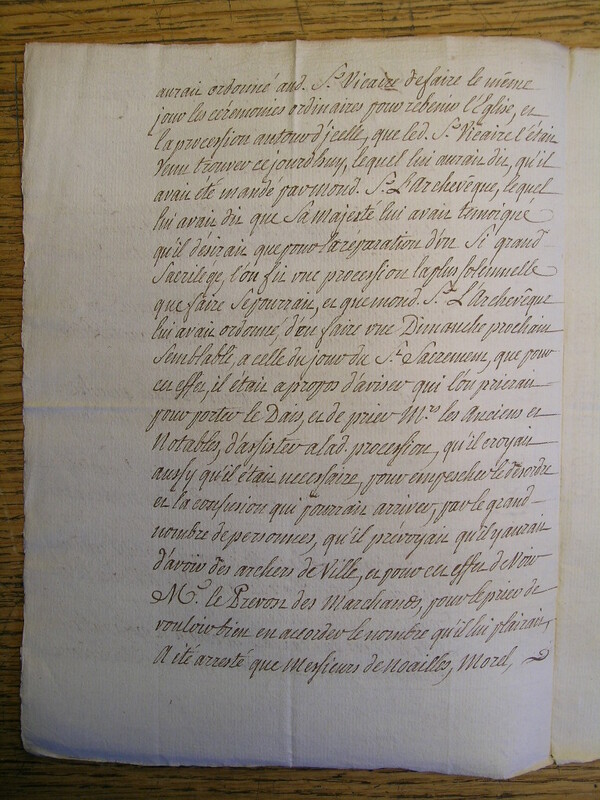 aurait ordonné aud. Sr. Vicaire de faire le même
jour les cérémonies ordinaires pour rebenir l'Église, et
la procession autour d'jcelle, que led. Sr. Vicaire l'était
venu trouver cejourdhuy, lequel lui aurait dit, qu'il
avait été mandé par mond. Sr. L'Archevêque, lequel
lui avait dit que Sa Majesté lui avait témoigné
qu'il désirait que pour la réparation d'un Si grand
Sacrilége, l'on fit une procession la plus Solennelle
que faire Se pourrait, et que mond. Sr. L'Archevêque
lui avait ordonné, d'en faire une Dimanche prochain
Semblable, a celle du jour du St. Sacrement, que pour
cet effet, il était a propos d'aviser qui l'on prierait
pour porter le Dais, et de prier Mrs. les Anciens et
Notables, d'assister a lad. procession, qu'il croyait
aussy qu'il était necessaire, pour empescher le désordre
et la confusion qui pourrait arriver, par le grand
nombre de personnes, qu'il prévoyait qu'il y aurait
d'avoir des archers de Ville, et pour cet effet de Voir
Mr. le Prevot des Marchands, pour le prier de
vouloir bien en accorder le nombre qu'il lui plairait,
A été arresté que Messieurs de Noailles, Morel,